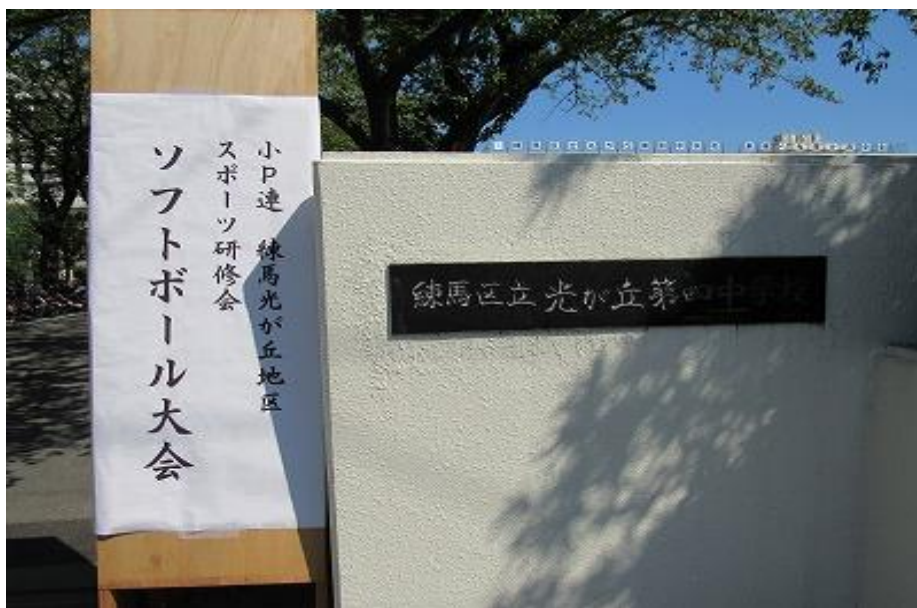 小P連 練馬光が丘地区
スポーツ研修会
ソフトボール大会
練馬区立光が丘第四中学校